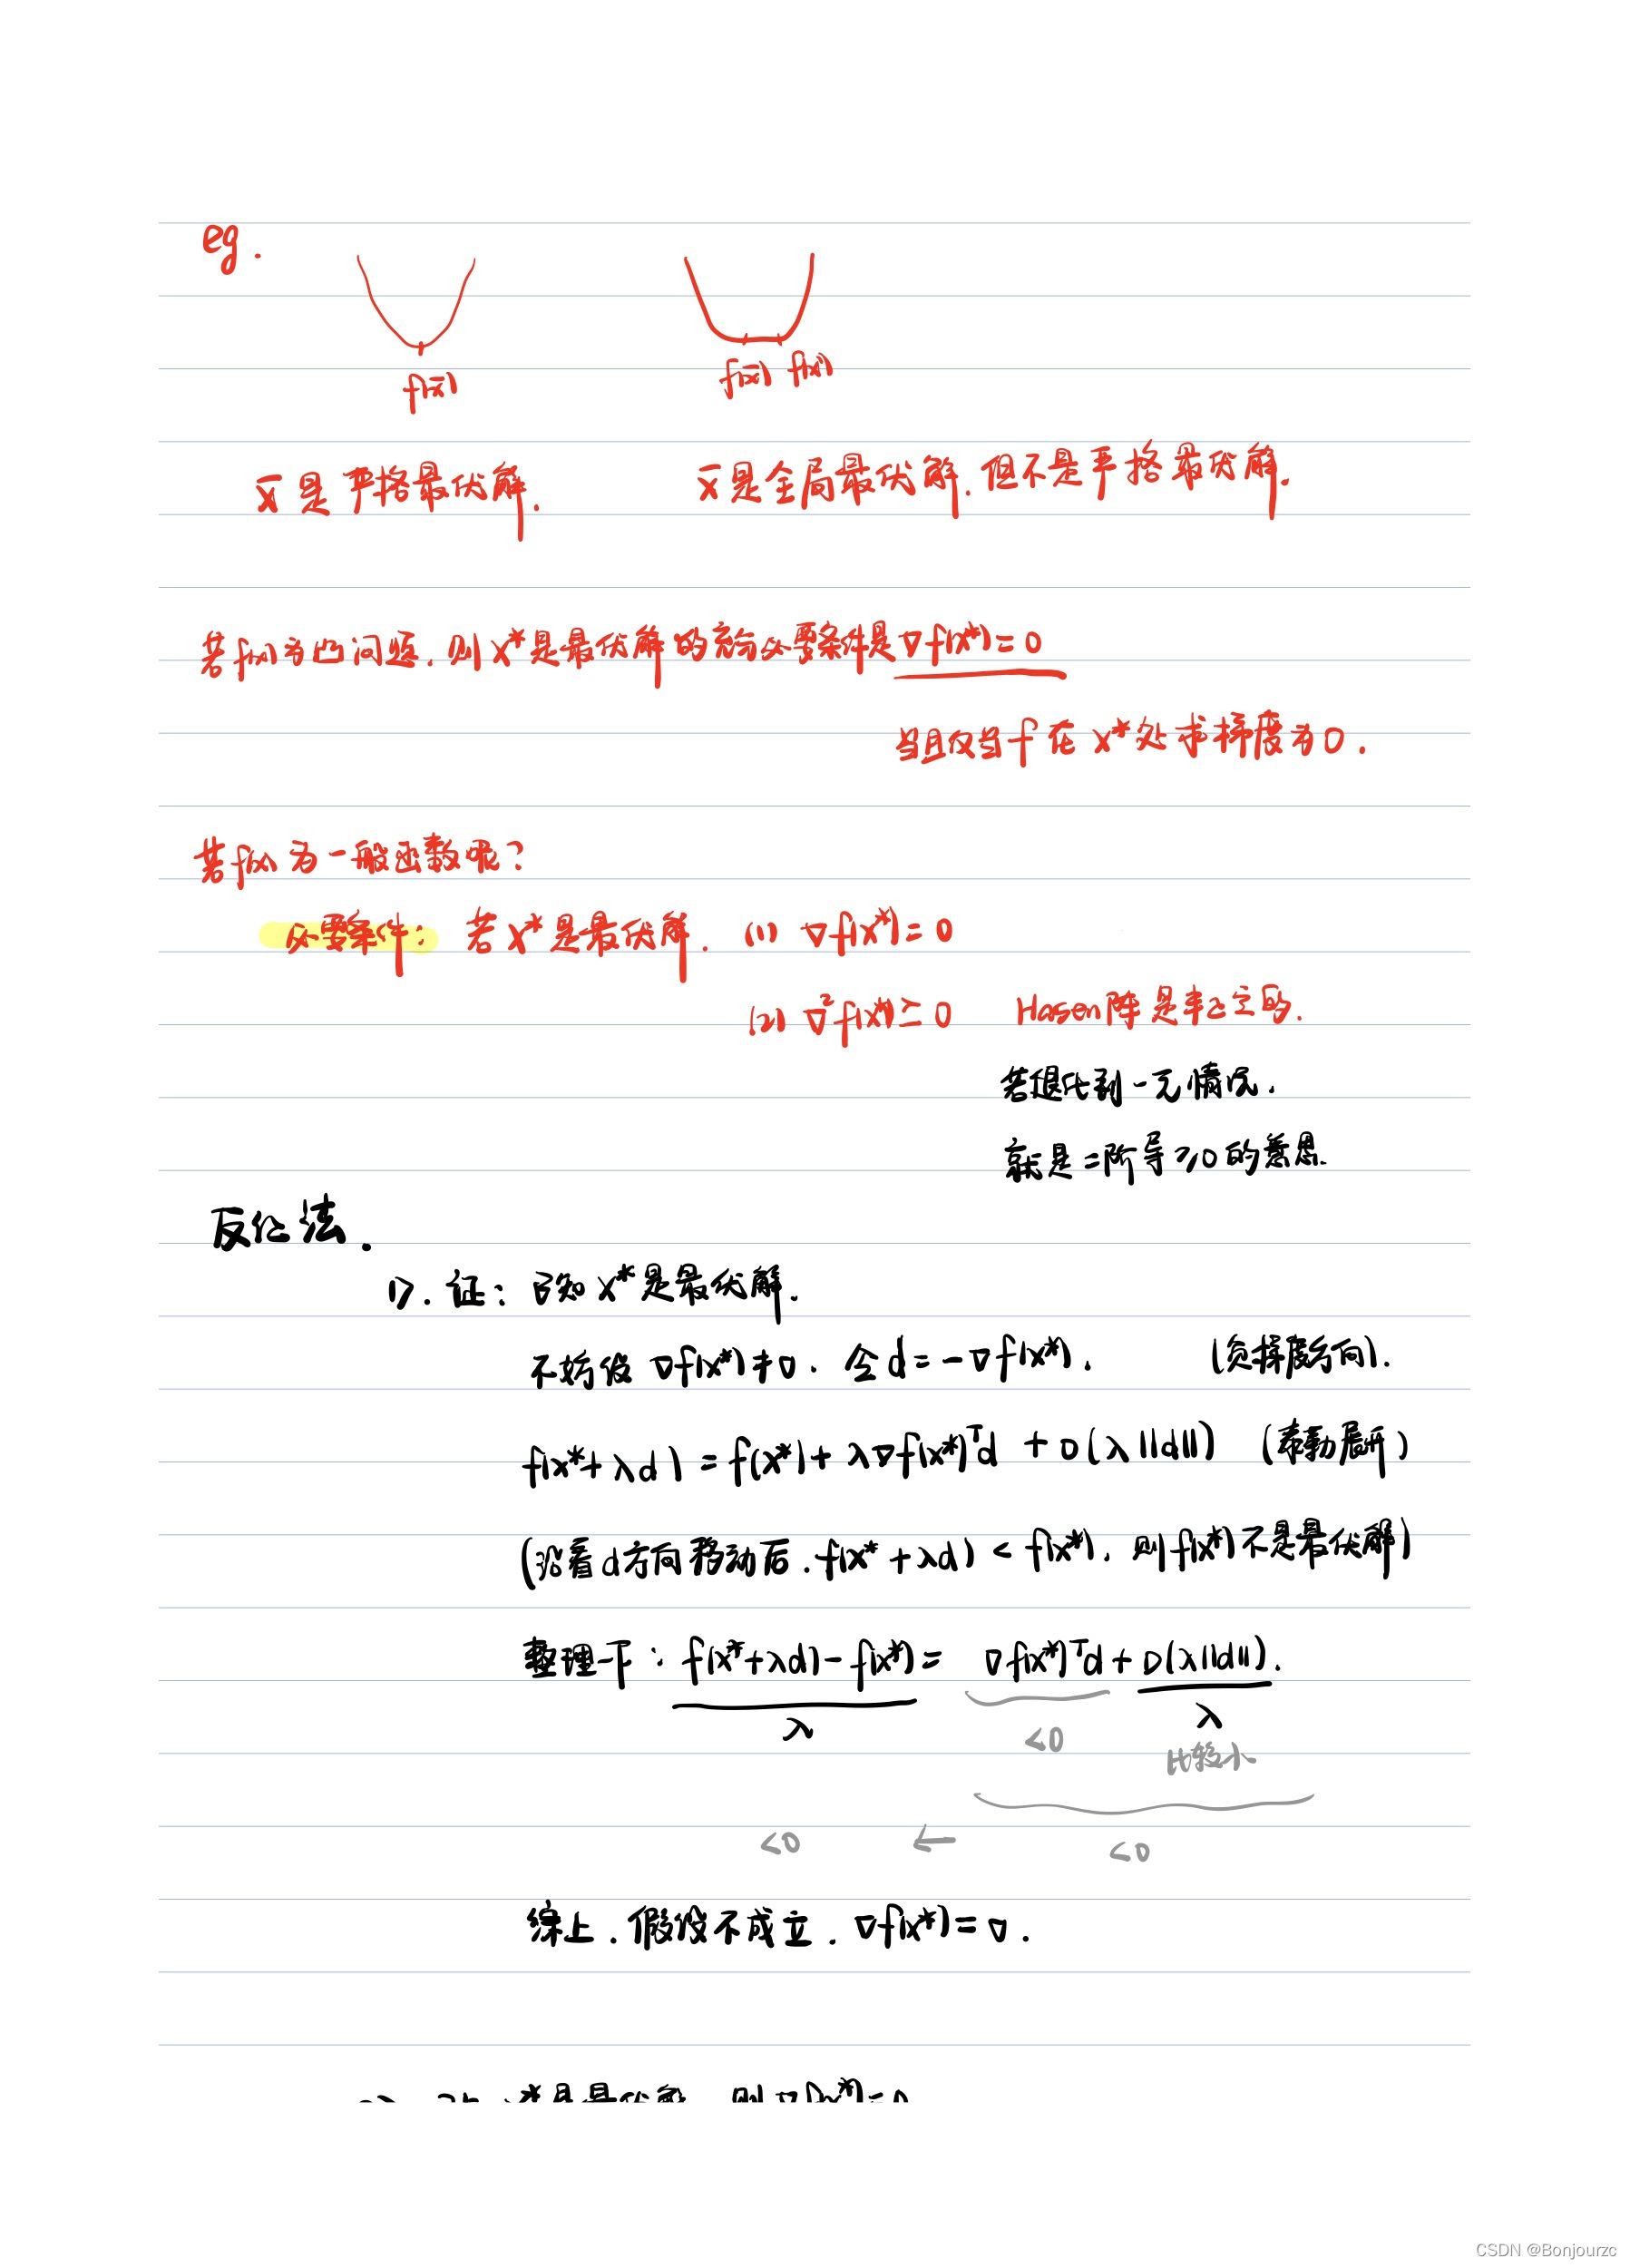 eg.
f(x̄)
f(x̄) f(x')
x̄是严格最优解.
x̄是全局最优解,但不是严格最优解.
若f(x)为凸问题,则x*是最优解的充分必要条件是∇f(x*)=0
当且仅当f在x*处求梯度为0.
若f(x)为一般函数呢?
必要条件: 若x*是最优解. (1) ∇f(x*)=0
(2) ∇²f(x*)≥0 Hasen阵是半正定的.
若退化到一元情况.
就是二阶导≥0的意思.
反证法.
1). 证: 已知x*是最优解.
不妨设 ∇f(x*)≠0. 令d=-∇f(x*). (负梯度方向).
f(x*+λd)=f(x*)+λ∇f(x*)ᵀd + o(λ||d||) (泰勒展开)
(沿着d方向移动后.f(x*+λd)<f(x*),则f(x*)不是最优解)
整理一下: f(x*+λd)-f(x*) = ∇f(x*)ᵀd + o(λ||d||).
λ <0 λ
比较小
<0 ← <0
综上.假设不成立.∇f(x*)=0.
x*是最优解 则∇f(x*)=0
CSDN @Bonjourzc